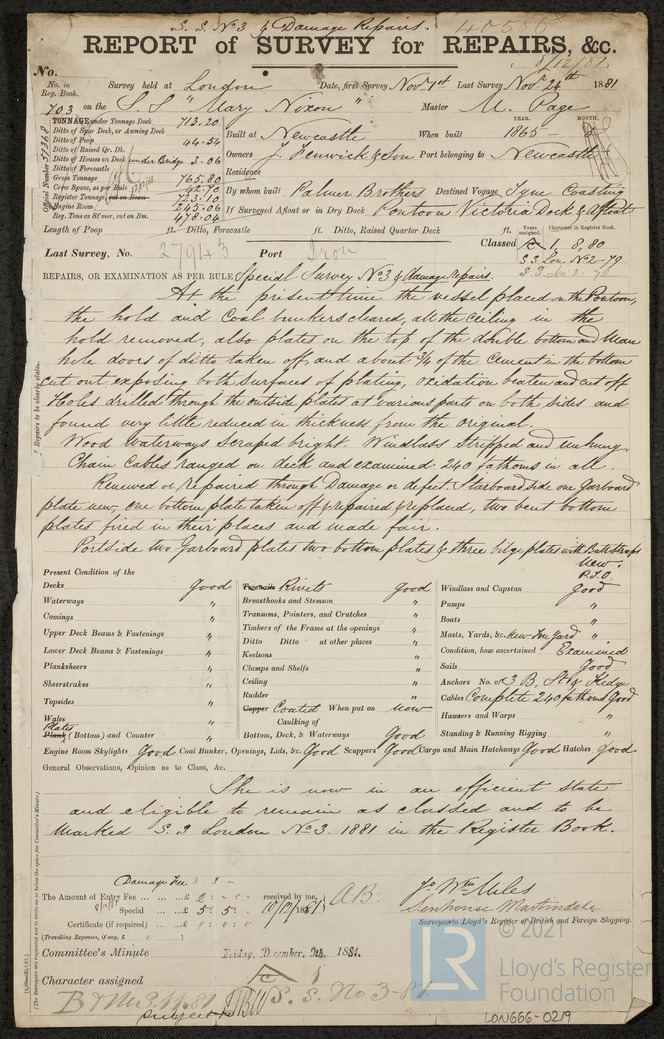 S.S. No 3 & Damage Repairs.
40556
REPORT of SURVEY for REPAIRS, &c.
8/12/81
No.
No. in Reg. Book. Survey held at London Date, first Survey Novr 1st Last Survey Novr 24th 1881
703 on the S.S "Mary Nixon" Master M. Page
TONNAGE under Tonnage Deck 713.20
Ditto of Spar Deck, or Awning Deck
Ditto of Poop 44.54
Ditto of Raised Qr. Dk.
Ditto of Houses on Deck under Bridge 3.06
Ditto of Forecastle
Gross Tonnage 765.80
Crew Space, as per Rule 42.70
Register Tonnage 723.10
Engine Room 245.06
Reg. Tons as St'mer, cut on Bm. 478.04
Official Number
YEAR. MONTH.
Built at Newcastle When built 1865 - 8
Owners J. Fenwick & Son Port belonging to Newcastle
Residence
By whom built Palmer Brothers Destined Voyage Tyne Coasting
If Surveyed Afloat or in Dry Dock Pontoon Victoria Dock & Afloat
Length of Poop ft. Ditto, Forecastle ft. Ditto, Raised Quarter Deck ft.
Years assigned. Character in Register Book.
Last Survey, No. 27945 Port Iron Classed 1, 8,80
S S Lon. No 2-79
REPAIRS, OR EXAMINATION AS PER RULE Special Survey No 3 & damage repairs.
At the present time the vessel placed on the Pontoon,
the hold and Coal bunkers cleared, all the Ceiling in the
hold removed, also plates on the top of the double bottom and Man
hole doors of ditto taken off, and about 3/4 of the Cement in the bottom
cut out, exposing both surfaces of plating, oxidation beaten and cut off
Holes drilled through the outside plates at various parts on both sides and
found very little reduced in thickness from the original.
Wood Waterways scraped bright. Windlass stripped and unhung
Chain Cables ranged on deck and examined 240 fathoms in all.
Renewed or repaired through Damage or defect. Starboard side one Garboard
plate new, one bottom plate taken off & repaired & replaced, two bent bottom
plates fired in their places and made fair.
Portside two Garboard plates two bottom plates & three bilge plates with Buttstraps
new.
P.T.O.
(Repairs to be clearly stated.)
Present Condition of the
Decks Good
Waterways "
Comings "
Upper Deck Beams & Fastenings "
Lower Deck Beams & Fastenings "
Planksheers "
Sheerstrakes "
Topsides "
Wales "
Plates
Plank (Bottom) and Counter "
Treenails Rivets Good
Breasthooks and Stemson "
Transoms, Pointers, and Crutches "
Timbers of the Frame at the openings "
Ditto Ditto at other places "
Keelsons "
Clamps and Shelfs "
Ceiling "
Rudder "
Copper Coated When put on now
Caulking of
Bottom, Deck, & Waterways Good
Windlass and Capstan Good
Pumps "
Boats "
Masts, Yards, &c. New Fre Yard "
Condition, how ascertained Examined
Sails Good
Anchors No. of 3 B, St & Kedge
Cables Complete 240 fathoms Good
Hawsers and Warps "
Standing & Running Rigging "
Engine Room Skylights Good Coal Bunker, Openings, Lids, &c. Good Scuppers Good Cargo and Main Hatchways Good Hatches Good
General Observations, Opinion as to Class, &c.
She is now in an efficient state
and eligible to remain as classed and to be
Marked S.S London No 3. 1881 in the Register Book.
(The Surveyors are requested not to write on or below the space for Committee's Minute.)
Damage Fee 3 : 3 -
The Amount of Entry Fee £ 2 : - : - received by me, AB.
Special £ 5 : 5 . 12/12/1881
Certificate (if required) £
(Travelling Expenses, if any, £ )
Jo Wm Miles
Senhouse Martindale
Surveyors to Lloyd's Register of British and Foreign Shipping.
Committee's Minute Friday, December, 9th, 1881.
Character assigned 1
B & MS 11.81 S. S. No 3-81
subject to
LR
© 2021
Lloyd's Register
Foundation
LDN666-0219